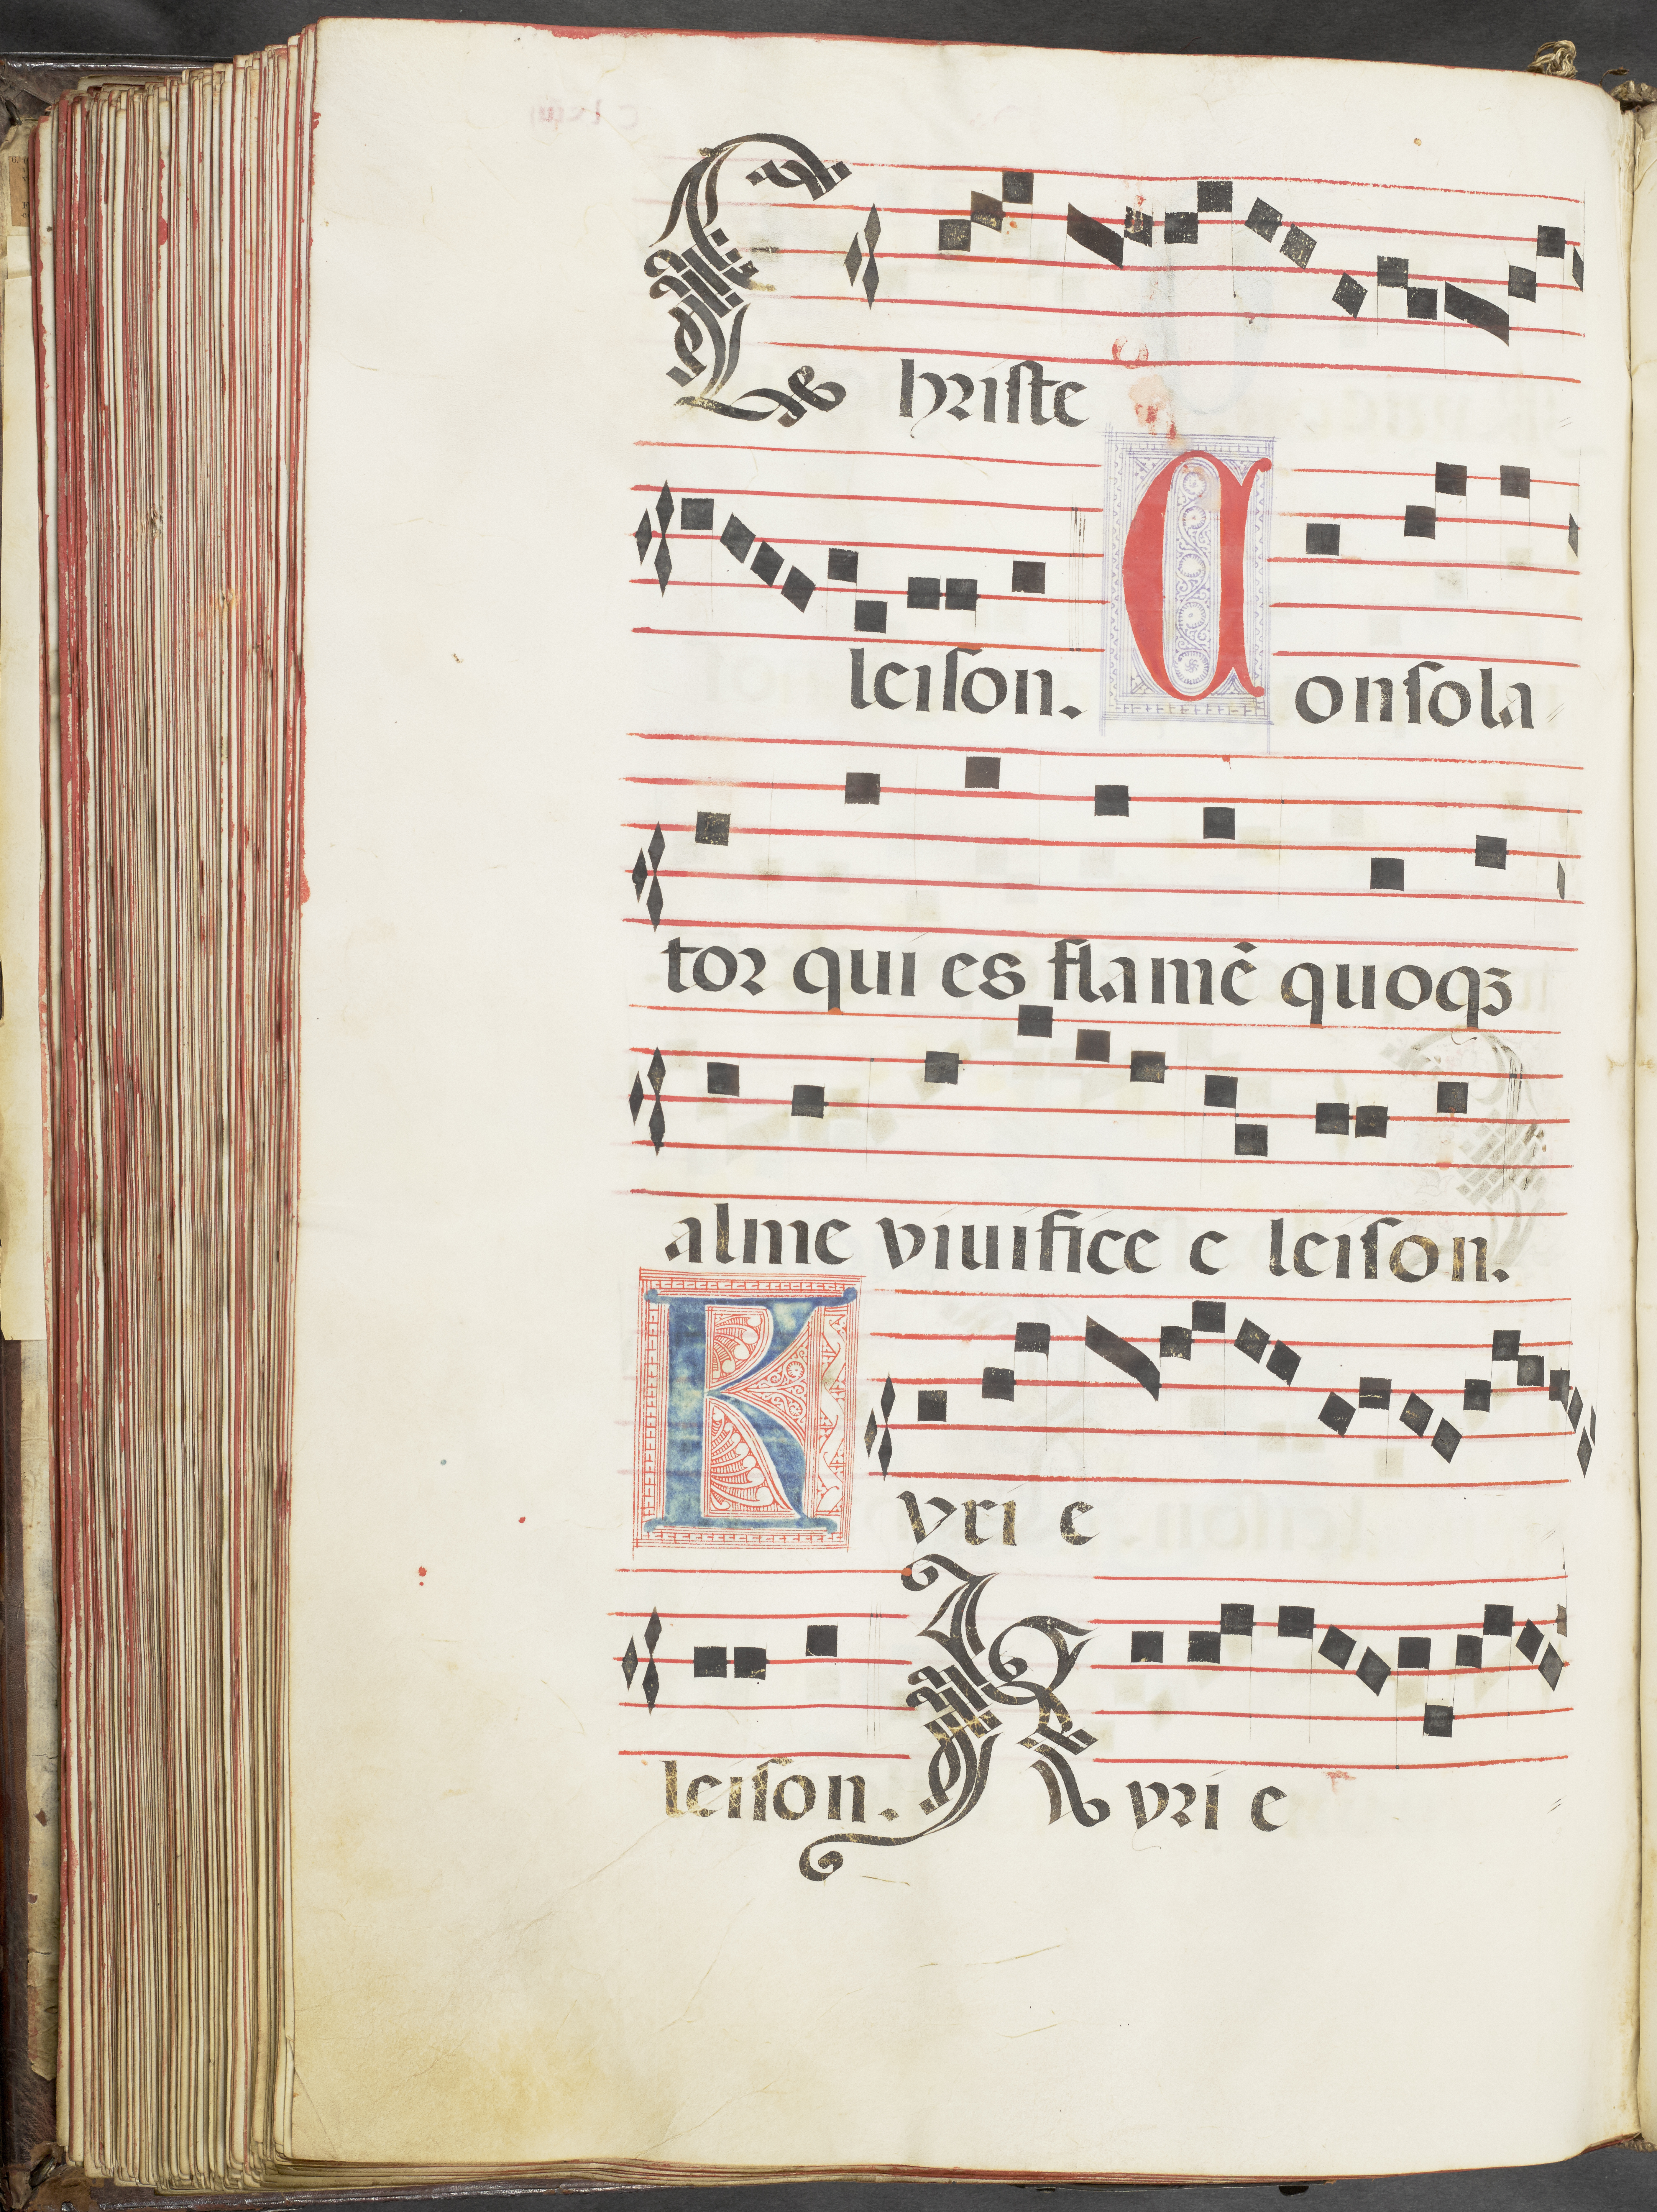 Christe
leiſon. Conſola
tor qui es flamē quoqꝫ
alme viuifice e leiſon.
Kyri e
leiſon. Kyri e